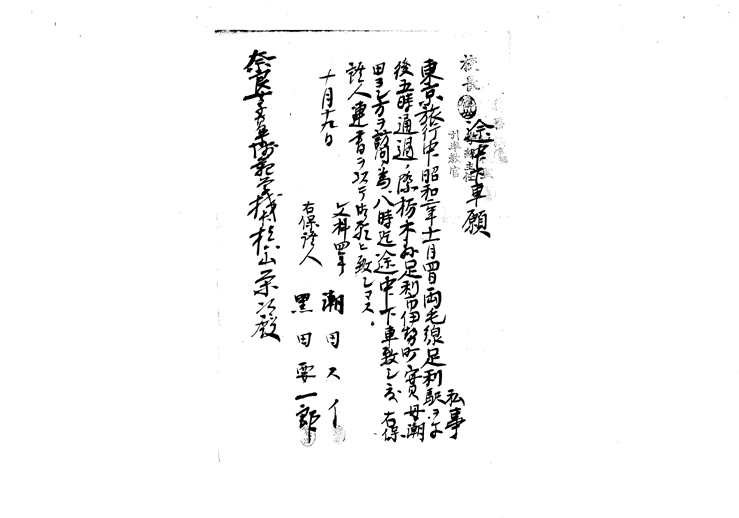 校長
途中下車願
引率教官
私事
東京旅行中、昭和二年十一月四日両毛線足利駅ヲ午
後五時通過ノ際栃木県足利市伊勢町実母潮
田ヨシ方ヲ訪問ノ為、八時迄途中下車致シ度 右保
証人連書ヲ以テ此段願ヒ致シマス。
十月十九日
文科四年 潮田スイ
右保証人 黒田要一郎
奈良女子高等師範学校長 山栄次殿